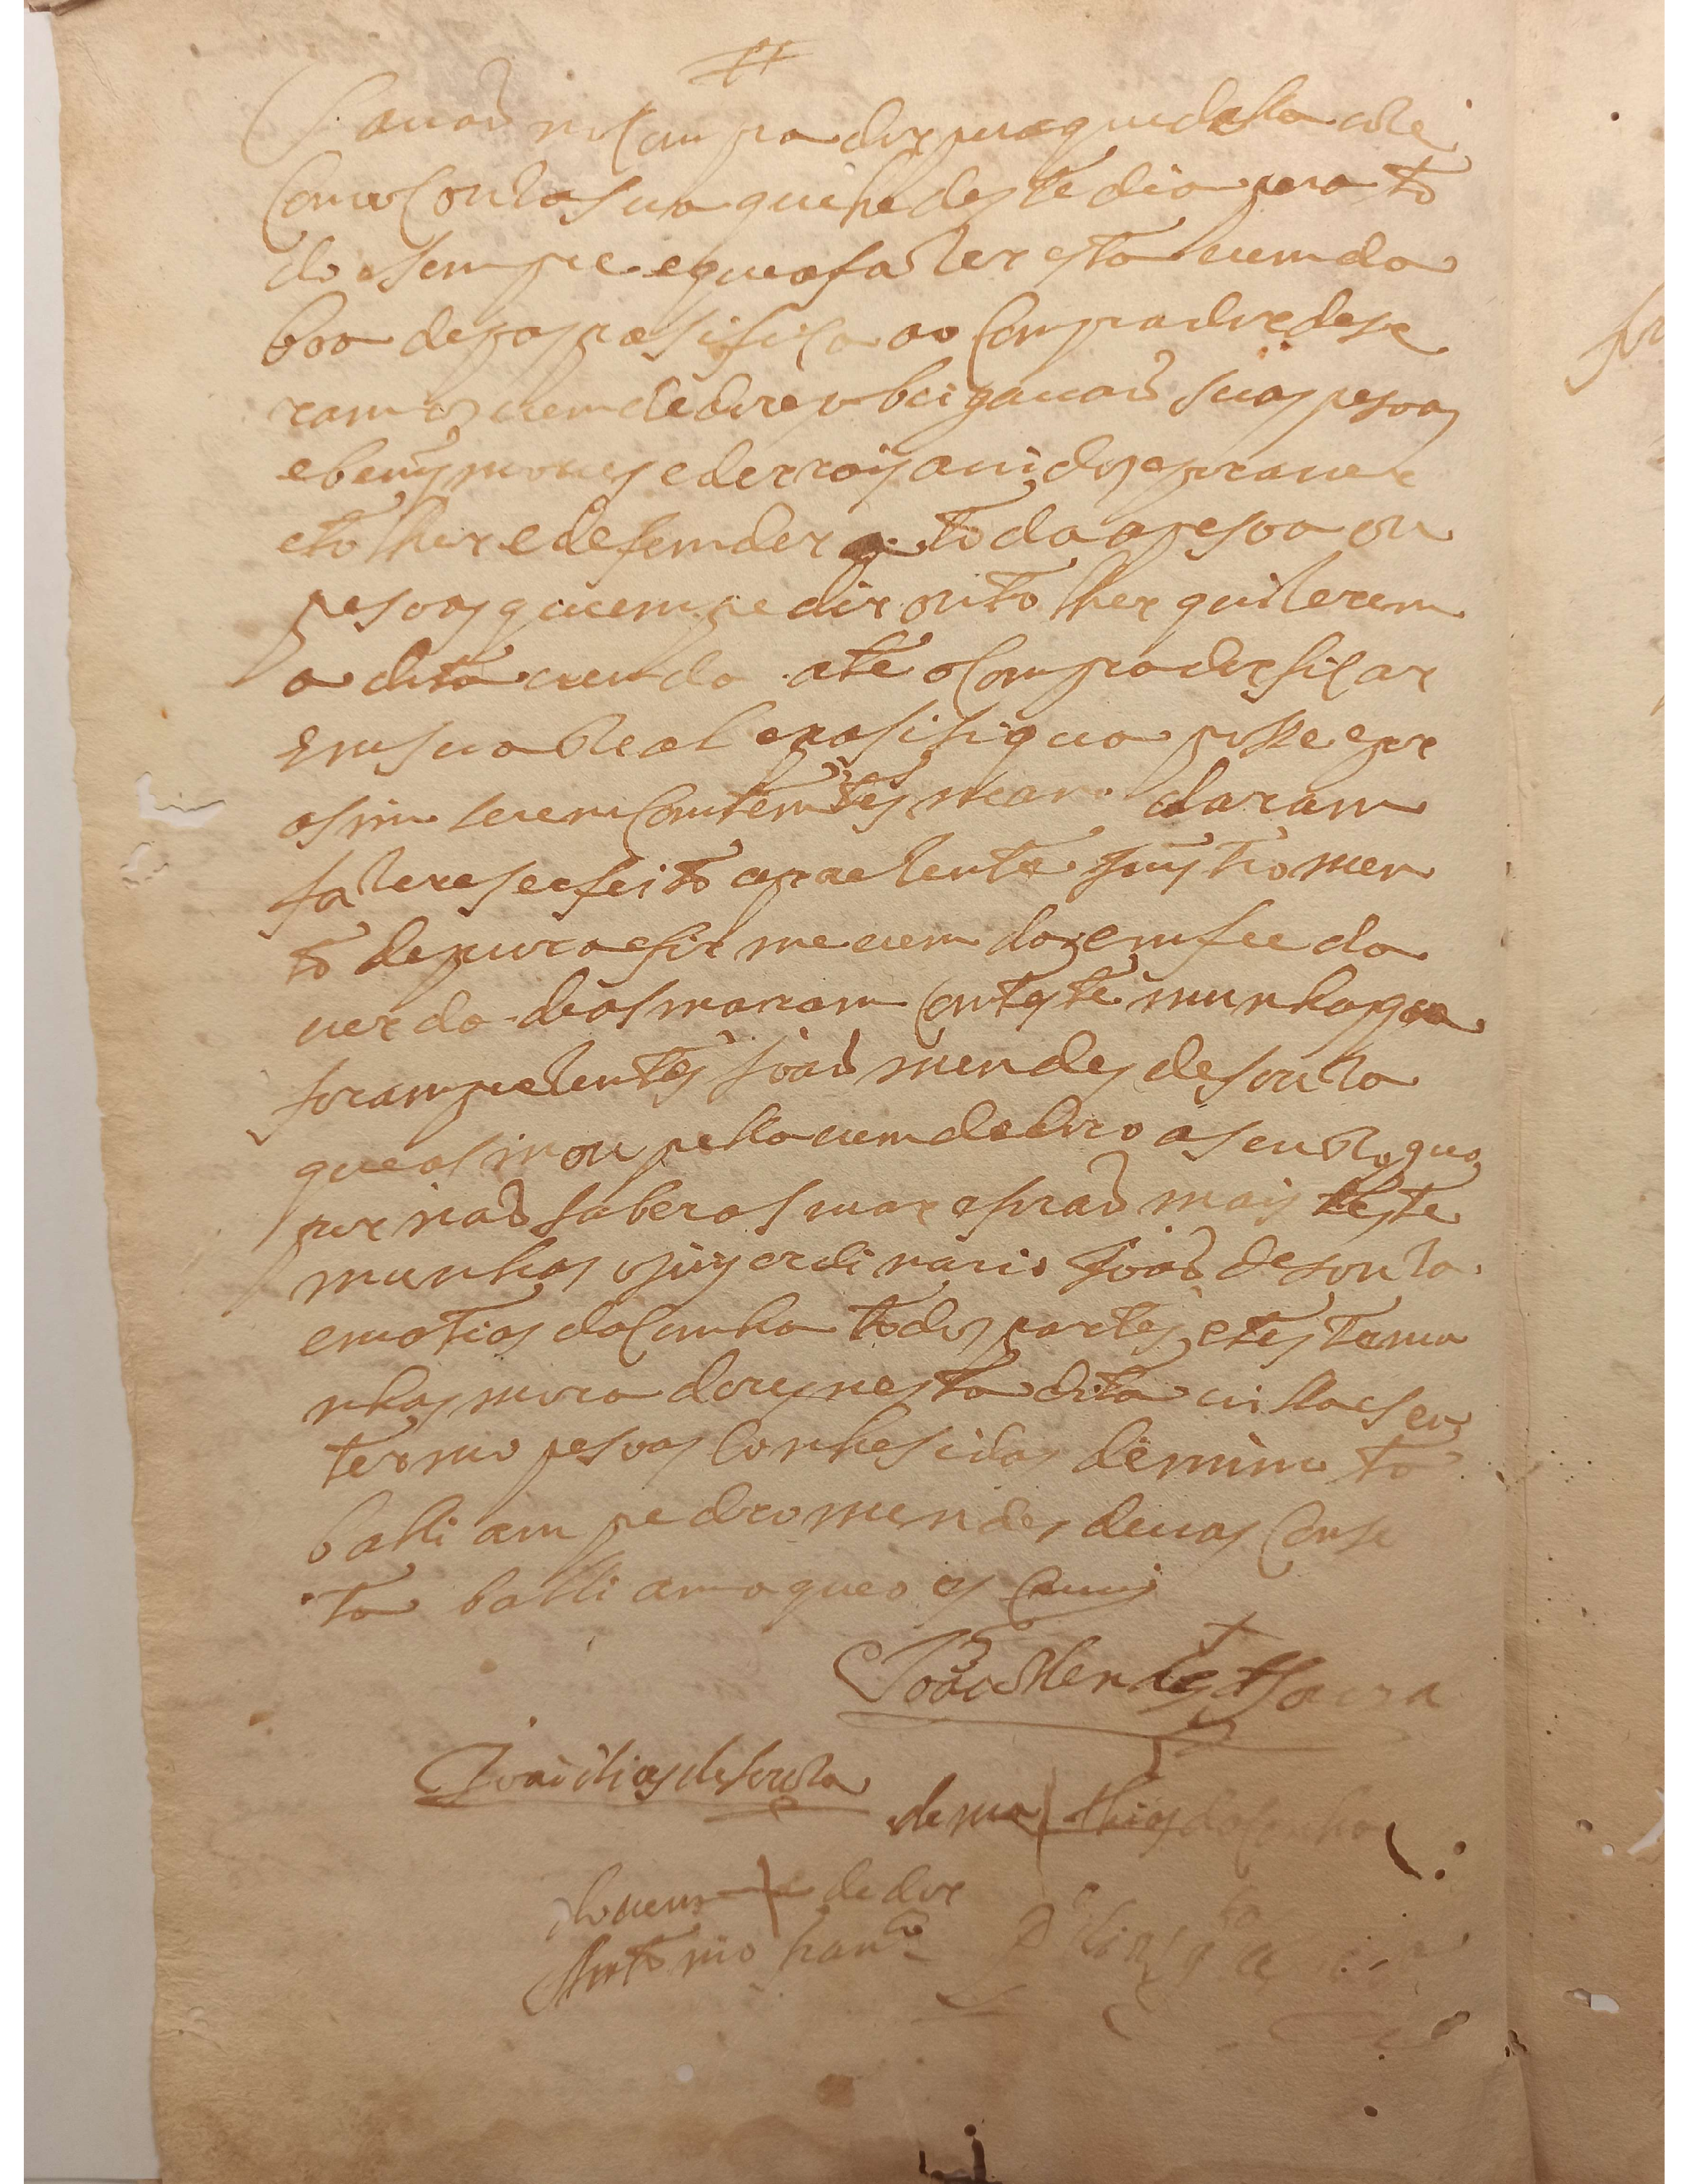 pasavaõ no Comprador pera que della uze
Como Couza sua que he deste dia pera to
do sempre e que a fazer esta uemda
boa de pas e pasifica ao Comprador dese
ram os uemdedores obrigauaõ suas pesoas
e bems moueis e de rrais auidos e por auer
e tolher e defemder a toda a pesoa ou
pesoas que empedir ou tolher quizerem
a dita uemda ate o Comprador ficar
Em sua Real e pasifiqua posse e por
asim serem Comtemtes mamdaram
fazer e ser feito aprezente Instromen
to de pura e firme uemda e em fee da
uerdade asinaram Com testemunhas que
foram prezentes Joaõ mendes de souza
que asinou pella uemdedora a seu Rogo
por naõ saber asinar e foraõ mais teste
munhas o juis ordinario Joaõ de souza
e matias da Cunha todos partes e testemu
nhas moradores nesta dita uilla e seu
termo pesoas Conhesidas de mim ta
balliam pedro mendes de uas Conse
ta balliam o que o escreui
Joaõ Mendes de Souza
Joaõ dias de souza
de ma thias da Cunha
do uem de dor
Antonio fran.co